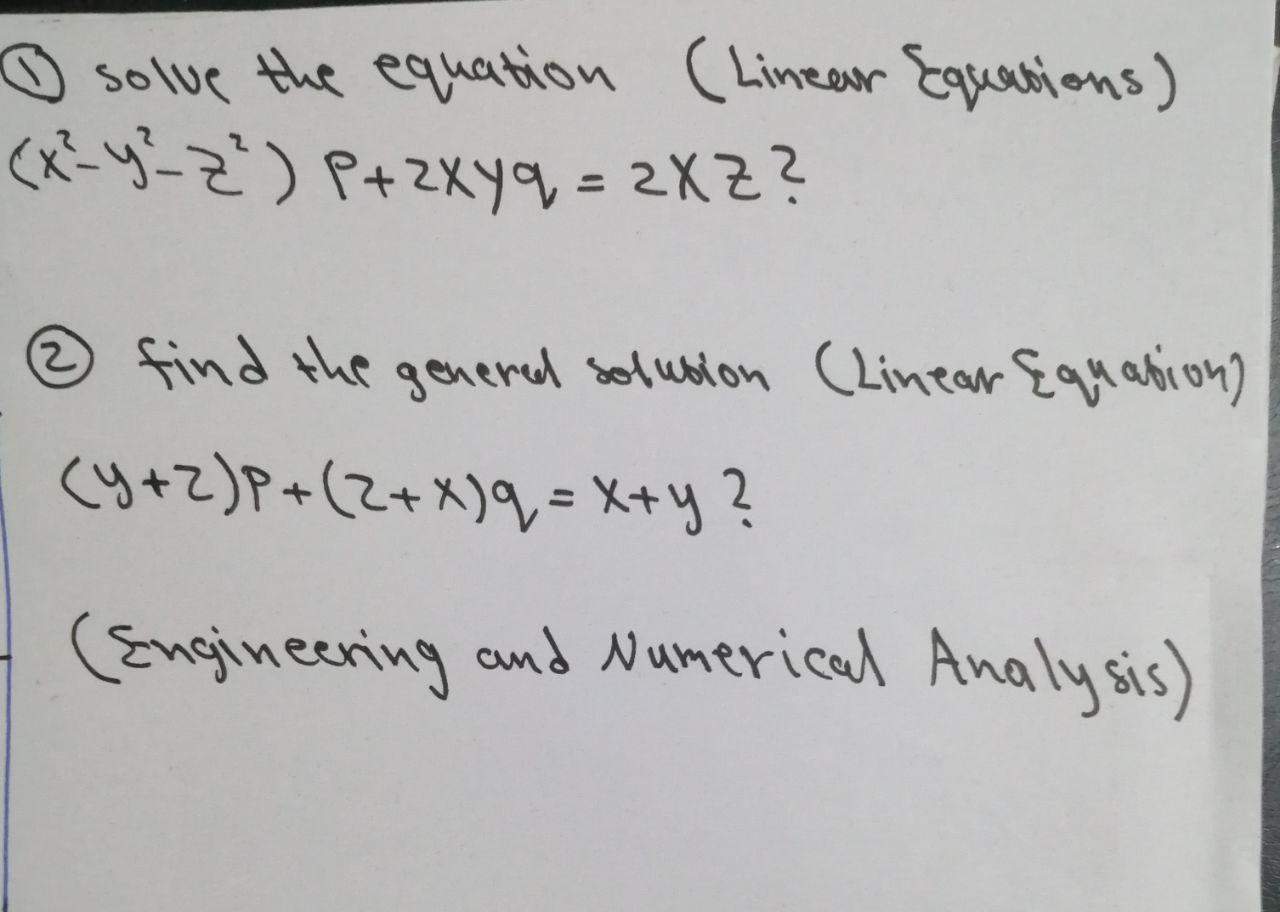 ① solve the equation (Linear Equations)
(x²-y²-z²) P+2xyq = 2xz?
② find the general solution (Linear Equation)
(y+z)P+(z+x)q = x+y ?
(Engineering and Numerical Analysis)